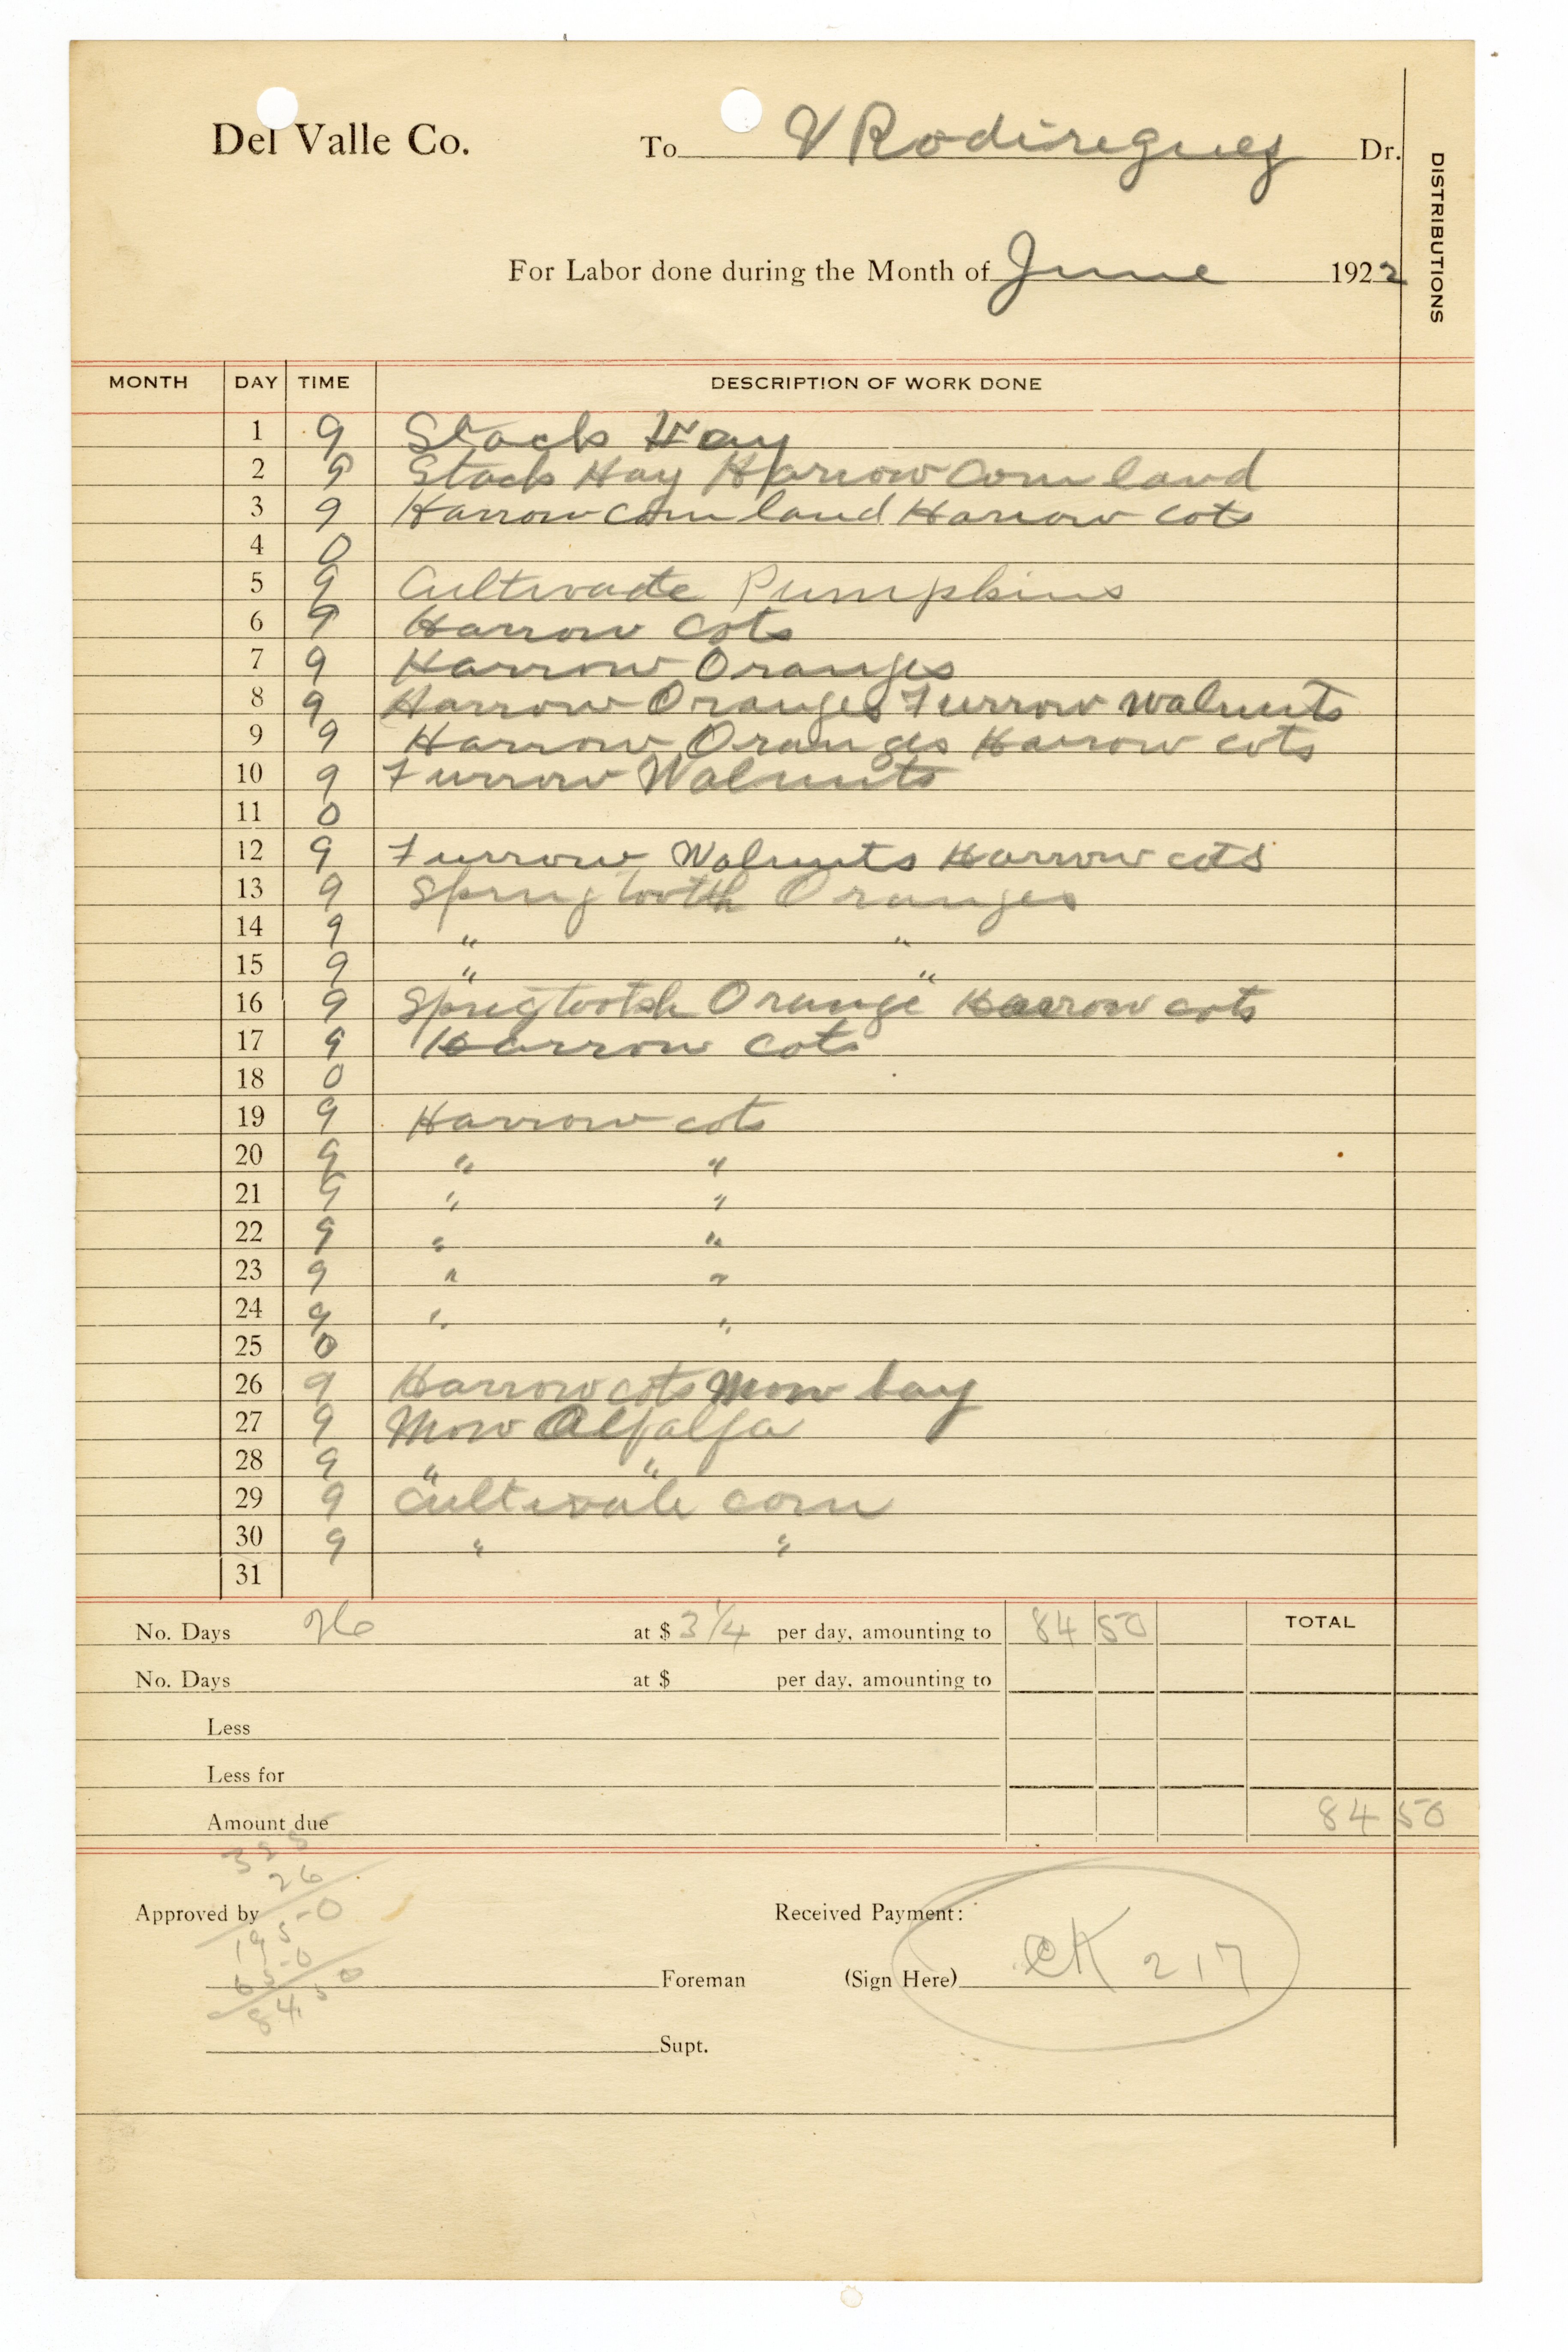 Del Valle Co. To V Rodireguez Dr.
DISTRIBUTIONS
For Labor done during the Month of June 1922
MONTH DAY TIME DESCRIPTION OF WORK DONE
1 9 Stack Hay
2 9 Stack Hay Harrow Corn land
3 9 Harrow Corn land Harrow cots
4 0
5 9 Cultivate Pumpkins
6 9 Harrow Cots
7 9 Harrow Oranges
8 9 Harrow Oranges Furrow Walnuts
9 9 Harrow Oranges Harrow cots
10 9 Furrow Walnuts
11 0
12 9 Furrow Walnuts Harrow cots
13 9 Spring tooth Oranges
14 9 " "
15 9 " "
16 9 Sprigtooth Orange Harrow cots
17 9 Harrow cots
18 0
19 9 Harrow cots
20 9 " "
21 9 " "
22 9 " "
23 9 " "
24 9 " "
25 0
26 9 Harrow cots Mow hay
27 9 Mow Alfalfa
28 9 " "
29 9 Cultivate corn
30 9 " "
31
No. Days 26 at $ 3 1/4 per day, amounting to 84 50 TOTAL
No. Days at $ per day, amounting to
Less
Less for
Amount due 84 50
325
26
Approved by Received Payment:
1950
650
8450
Foreman (Sign Here) CK 217
Supt.